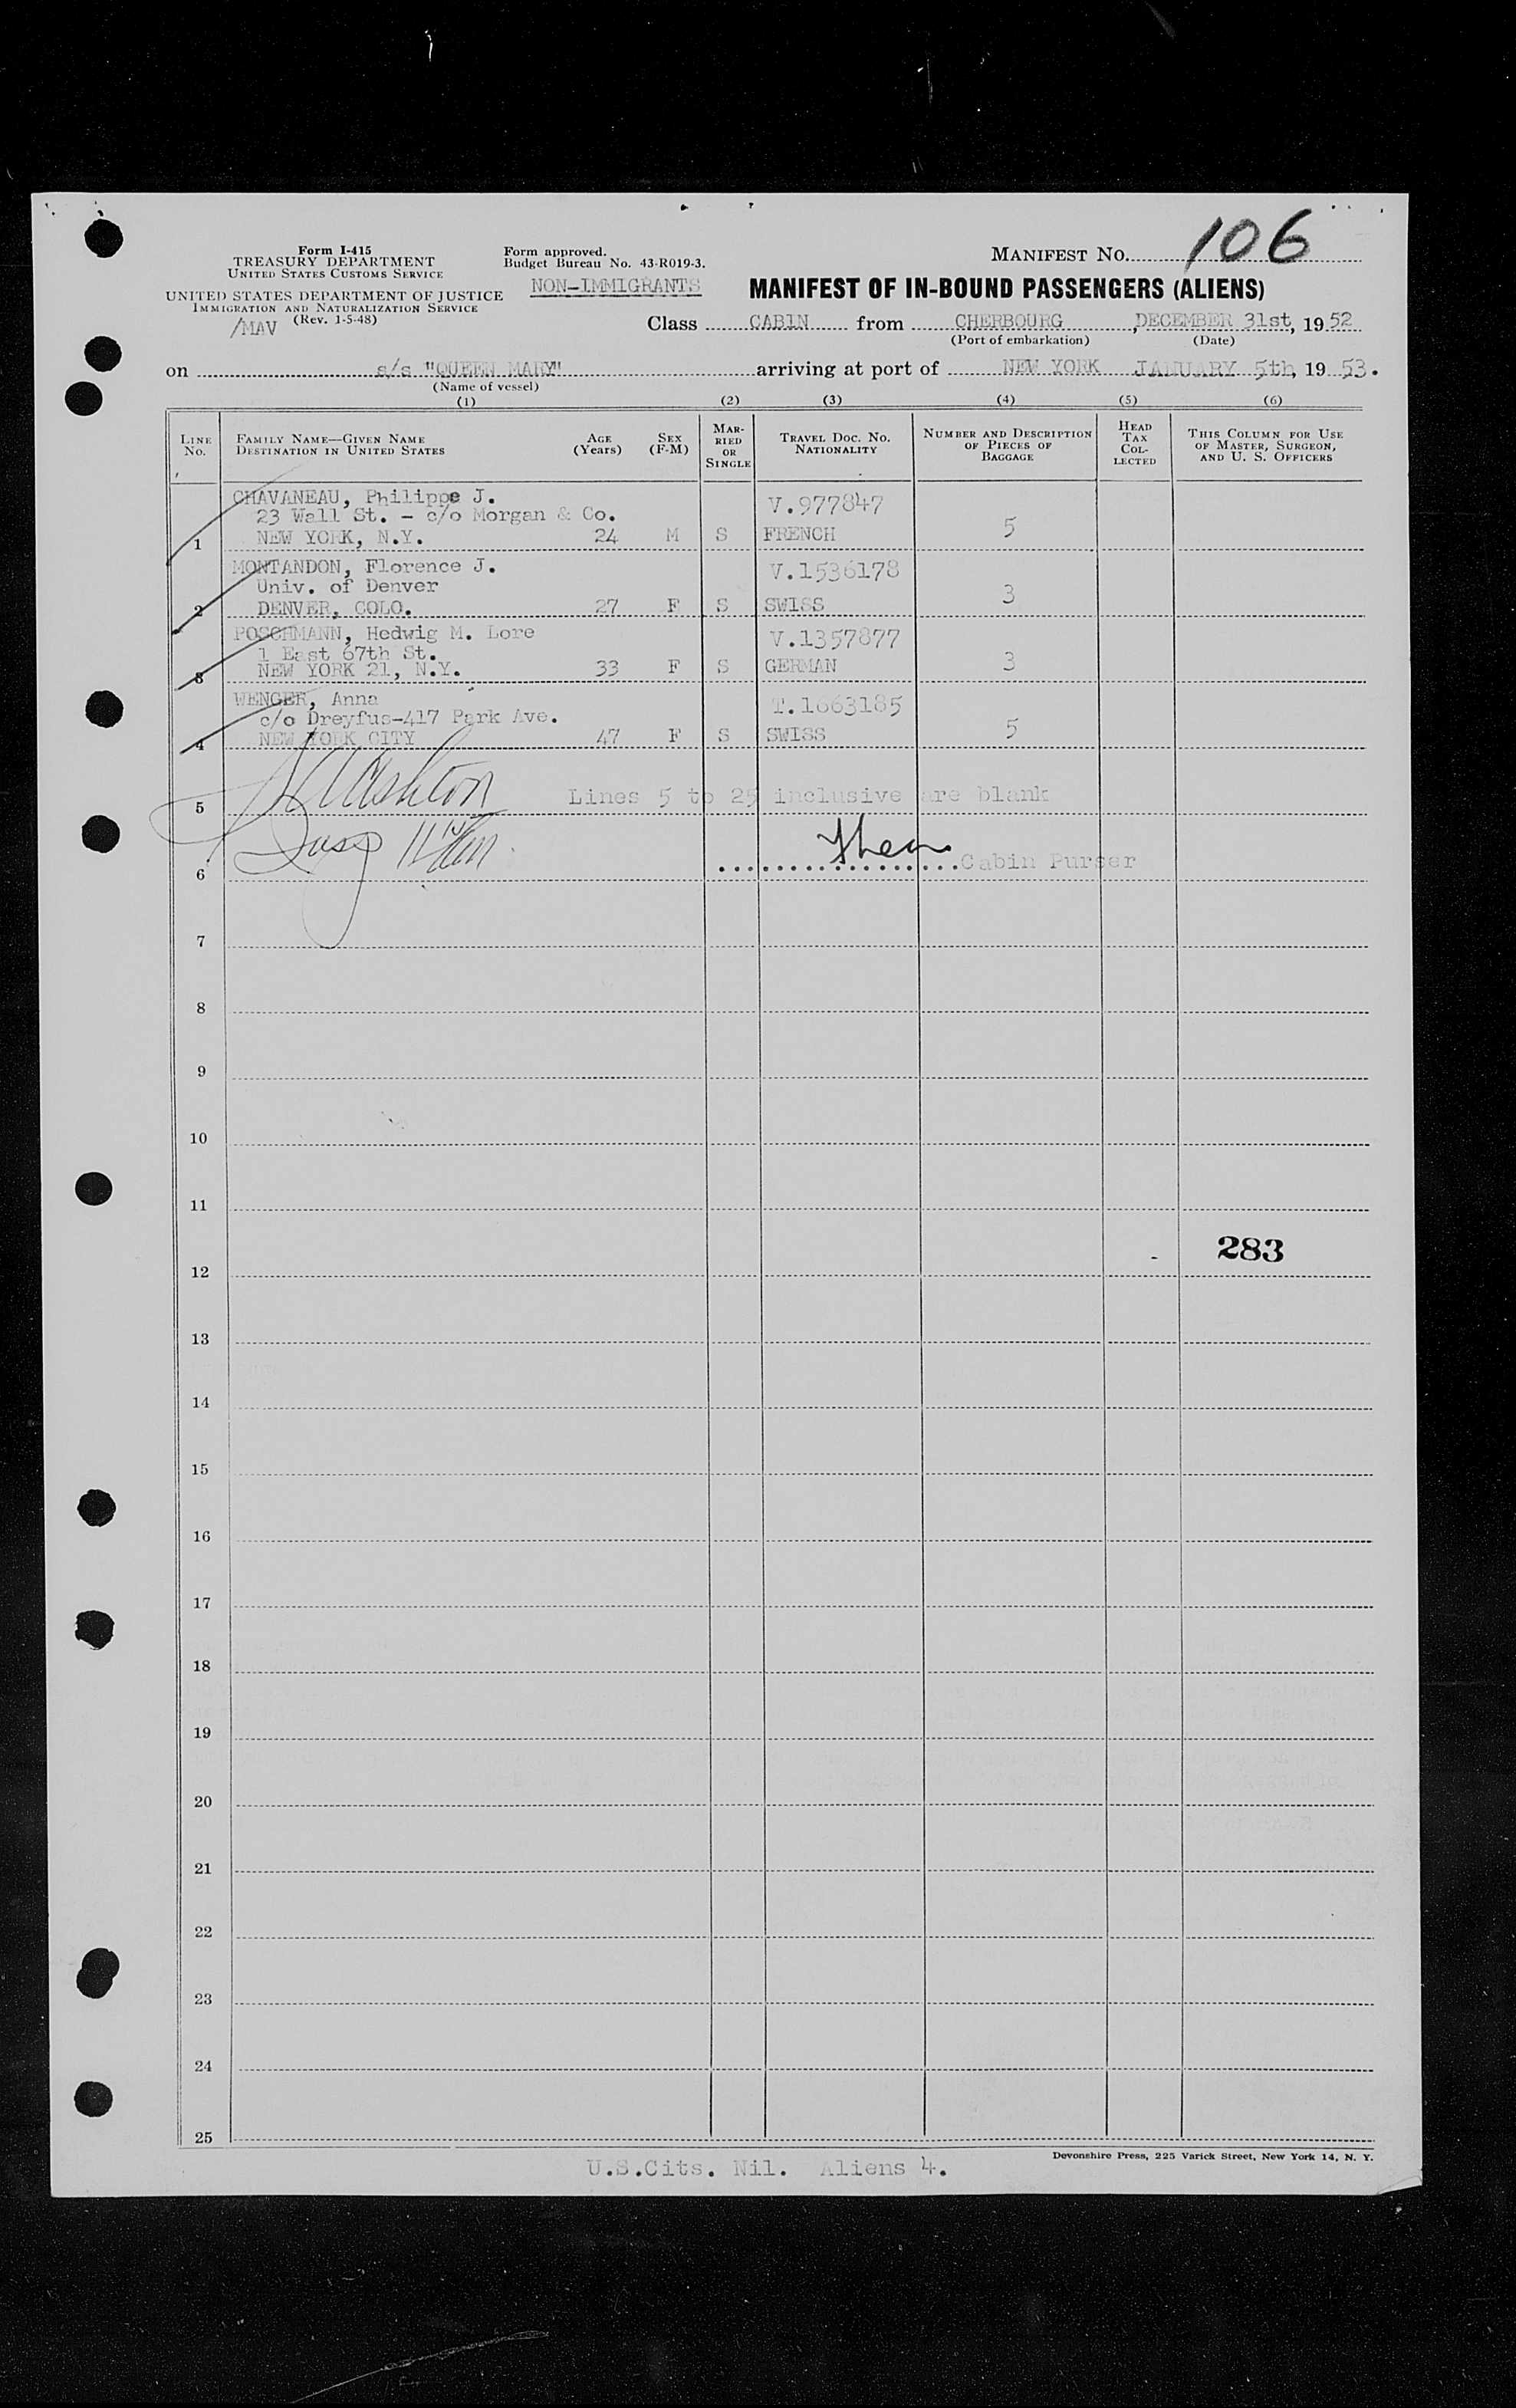 Form I-415
TREASURY DEPARTMENT
UNITED STATES CUSTOMS SERVICE
UNITED STATES DEPARTMENT OF JUSTICE
IMMIGRATION AND NATURALIZATION SERVICE
(Rev. 1-5-48)
/MAV
Form approved.
Budget Bureau No. 43-R019-3.
NON-IMMIGRANTS
MANIFEST NO. 106
MANIFEST OF IN-BOUND PASSENGERS (ALIENS)
Class CABIN from CHERBOURG, DECEMBER 31st, 1952
(Port of embarkation) (Date)
on s/s "QUEEN MARY" arriving at port of NEW YORK JANUARY 5th, 1953.
(Name of vessel)
(1) (2) (3) (4) (5) (6)
LINE NO.
FAMILY NAME—GIVEN NAME
DESTINATION IN UNITED STATES
AGE (Years)
SEX (F-M)
MARRIED OR SINGLE
TRAVEL DOC. NO.
NATIONALITY
NUMBER AND DESCRIPTION OF PIECES OF BAGGAGE
HEAD TAX COLLECTED
THIS COLUMN FOR USE OF MASTER, SURGEON, AND U. S. OFFICERS
CHAVANEAU, Philippe J. V.977847
23 Wall St. - c/o Morgan & Co.
1 NEW YORK, N.Y. 24 M S FRENCH 5
MONTANDON, Florence J. V.1536178
Univ. of Denver
2 DENVER, COLO. 27 F S SWISS 3
POSCHMANN, Hedwig M. Lore V.1357877
1 East 67th St.
3 NEW YORK 21, N.Y. 33 F S GERMAN 3
WENGER, Anna T.1663185
c/o Dreyfus-417 Park Ave.
4 NEW YORK CITY 47 F S SWISS 5
5 Lines 5 to 25 inclusive are blank
6 Cabin Purser
7
8
9
10
11
283
12
13
14
15
16
17
18
19
20
21
22
23
24
25
Devonshire Press, 225 Varick Street, New York 14, N. Y.
U.S.Cits. Nil. Aliens 4.